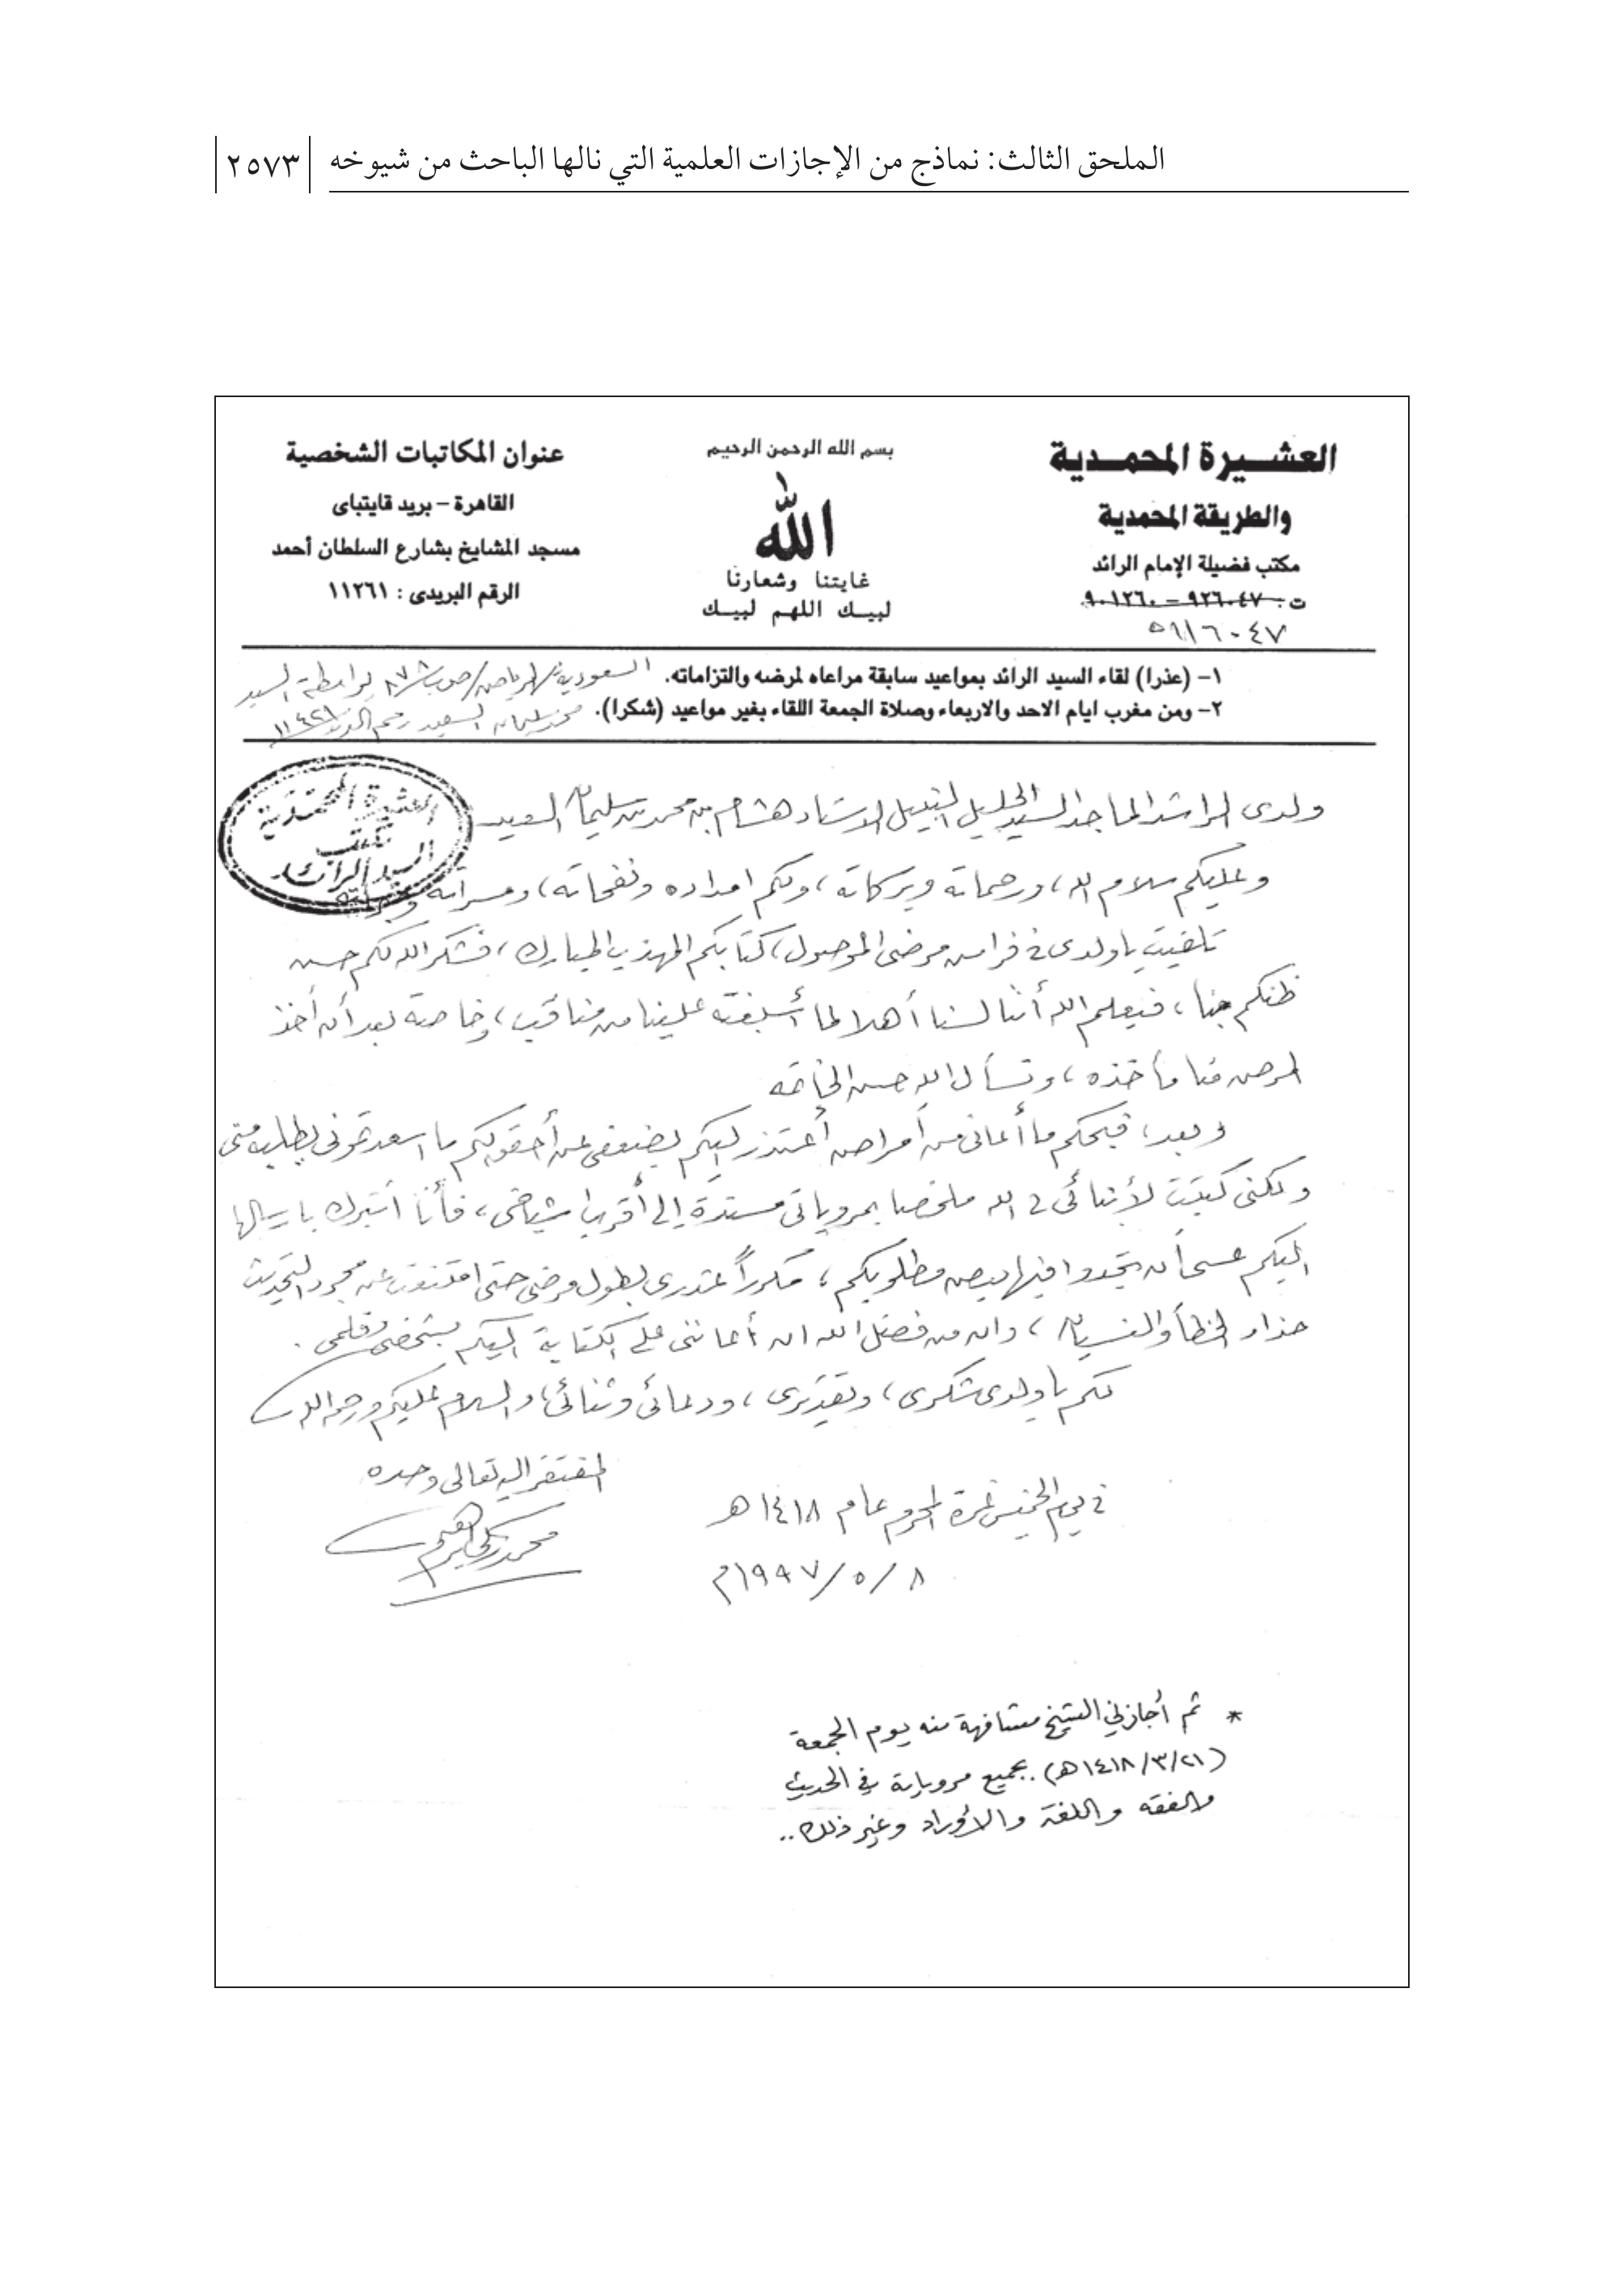 الملحق الثالث: نماذج من الإجازات العلمية التي نالها الباحث من شيوخه
٢٥٧٣
العشيرة المحمدية
والطريقة المحمدية
مكتب فضيلة الإمام الرائد
ت: ٩٢٦٠٤٧ – ٩٠١٢٦٠
٥٩١٦٠٤٧
بسم الله الرحمن الرحيم
الله
غايتنا وشعارنا
لبيك اللهم لبيك
عنوان المكاتبات الشخصية
القاهرة – بريد قايتباى
مسجد المشايخ بشارع السلطان أحمد
الرقم البريدى : ١١٢٦١
١– (عذرا) لقاء السيد الرائد بمواعيد سابقة مراعاه لمرضه والتزاماته.
٢– ومن مغرب ايام الاحد والاربعاء وصلاة الجمعة اللقاء بغير مواعيد (شكرا).
السعودية/الرياض/ بواسطة السيد
محمد سليمان السعيد رمز البريد ١١٤٢١
العشيرة المحمدية
مكتب
السيد الرائد
ولدى الراشد الماجد السيد الجليل النبيل الاستاذ هشام بن محمد بن سليمان السعيد
وعليكم سلام الله، ورحماته وبركاته، ولكم امداده ونفحاته، ومسراته
تلقيت يا ولدى فى فراش مرضى الموصول، كتابكم المهذب المبارك، فشكر الله لكم حسن
ظنكم بنا، فيعلم الله أننا لسنا أهلا لما أسبغته علينا من مناقب، وخاصة بعد أن أخذ
المرض منا مأخذه، ونسأل الله حسن الخاتمه
وبعد، فبحكم ما أعانى من أمراض أعتذر إليكم لضعفى عن أحقق لكم ما اسعدتمونى بطلبه منى
ولكنى كتبت لأبنائى فى الله ملخصا بمروياتى مسندة إلى أقرب اشياخى، فأنا اتبرك بارسالها
اليكم عسى أن تجدوا فيها بعض مطلوبكم، مكررا عذرى لطول مرضى حتى امتنعت عن مجرد التحديث
حذار الخطأ والنسيان، وانه من فضل الله ان أعاننى على الكتابة اليكم بشخصى وقلمى.
لكم يا ولدى شكرى، وتقديرى، ودعائى وثنائى، والسلام عليكم ورحمة الله
فى يوم الخميس غرة المحرم عام ١٤١٨ هـ
٨/٥/١٩٩٧م
المفتقر اليه تعالى وحده
محمد زكى ابراهيم
* ثم أجازني الشيخ مشافهة منه يوم الجمعة
(١٤١٨/٣/٢١هـ). بجميع مروياته في الحديث
والفقه واللغة والأوراد وغير ذلك..